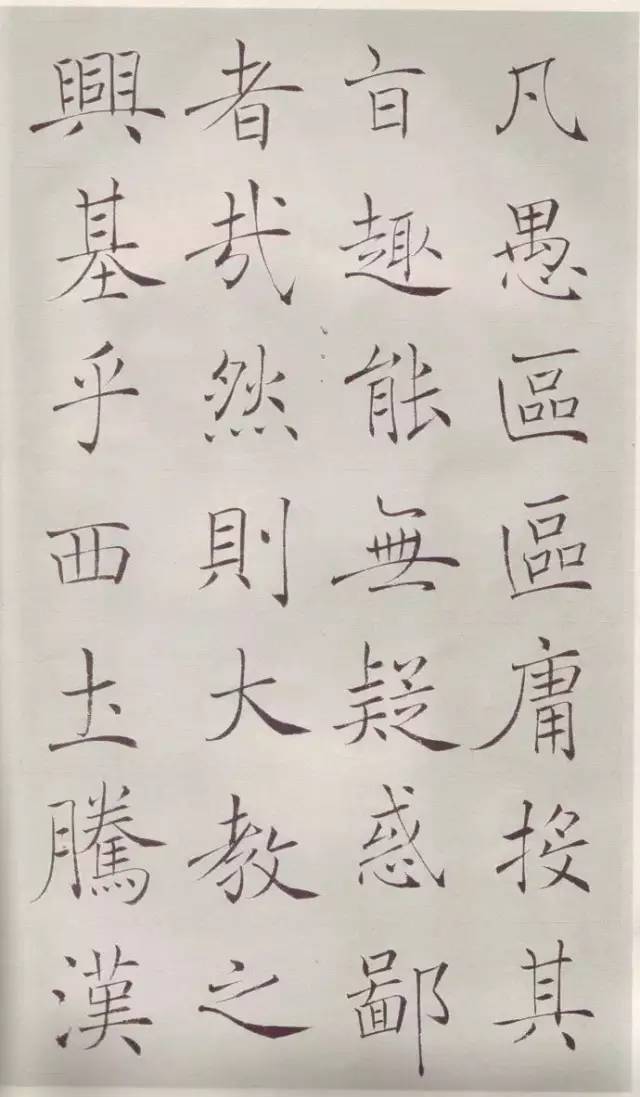 凡愚區區庸投其
旨趣能無疑惑鄙
者哉然則大教之
興基乎西土騰漢